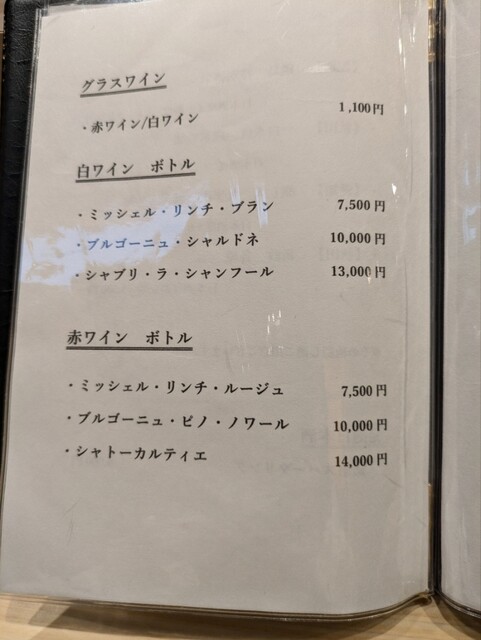 グラスワイン
・赤ワイン/白ワイン 1,100円
白ワイン ボトル
・ミッシェル・リンチ・ブラン 7,500円
・ブルゴーニュ・シャルドネ 10,000円
・シャブリ・ラ・シャンフール 13,000円
赤ワイン ボトル
・ミッシェル・リンチ・ルージュ 7,500円
・ブルゴーニュ・ピノ・ノワール 10,000円
・シャトーカルティエ 14,000円